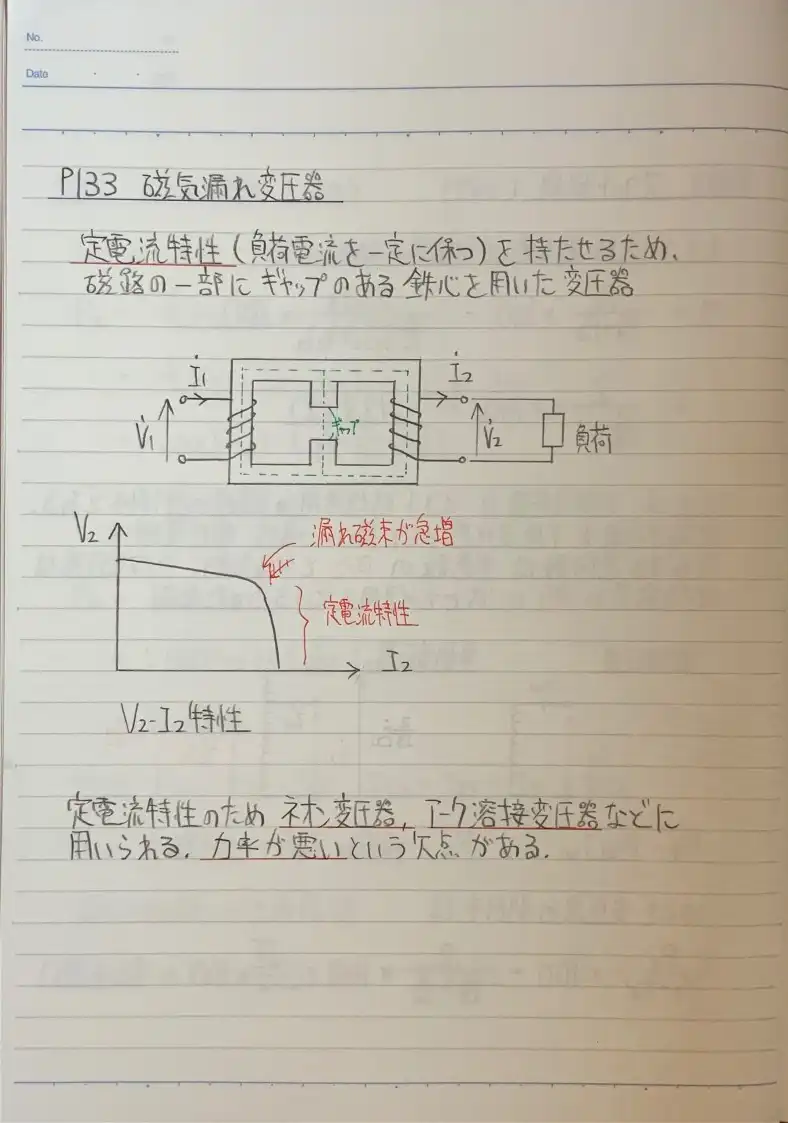 No.
Date
P133 磁気漏れ変圧器
定電流特性(負荷電流を一定に保つ)を持たせるため、
磁路の一部にギャップのある鉄心を用いた変圧器
İ1
İ2
V̇1
ギャップ
V̇2
負荷
V2
漏れ磁束が急増
定電流特性
I2
V2-I2特性
定電流特性のため ネオン変圧器, アーク溶接変圧器などに
用いられる. 力率が悪いという欠点がある.